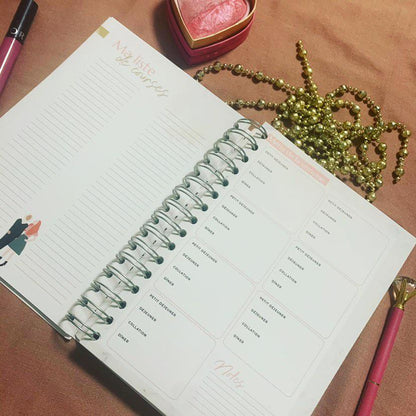 Ma liste
de courses
PETIT DEJEUNER
DEJEUNER
COLLATION
DINER
PETIT DEJEUNER
DEJEUNER
COLLATION
DINER
PETIT DEJEUNER
DEJEUNER
COLLATION
DINER
PETIT DEJEUNER
DEJEUNER
COLLATION
DINER
PETIT DEJEUNER
DEJEUNER
COLLATION
DINER
PETIT DEJEUNER
DEJEUNER
COLLATION
DINER
PETIT DEJEUNER
DEJEUNER
COLLATION
DINER
Notes